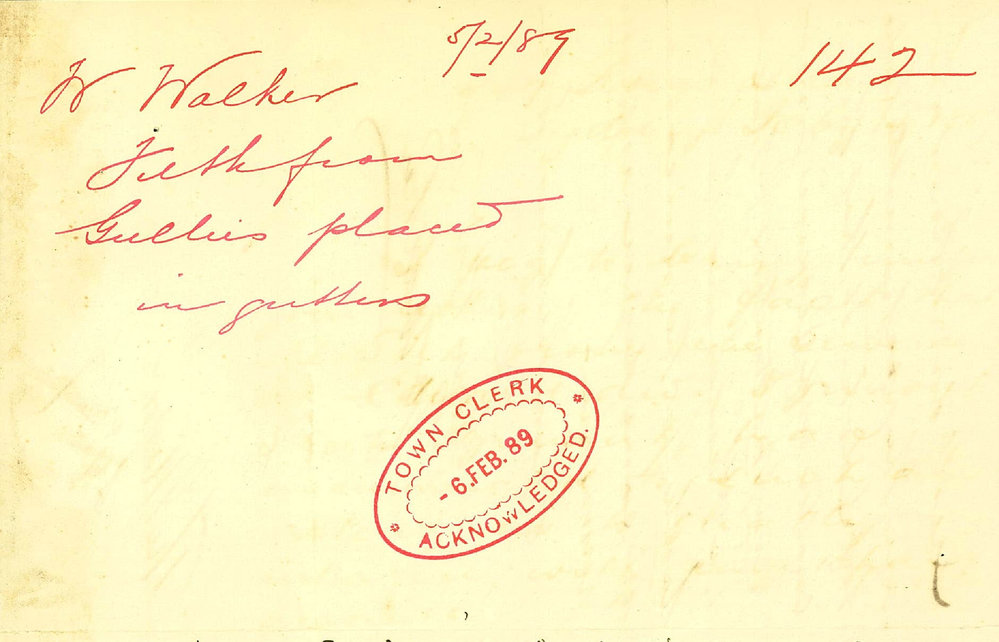 5/2/89
142
W Walker
Filth from
Gullies placed
in gutters
TOWN CLERK
- 6. FEB. 89
ACKNOWLEDGED.